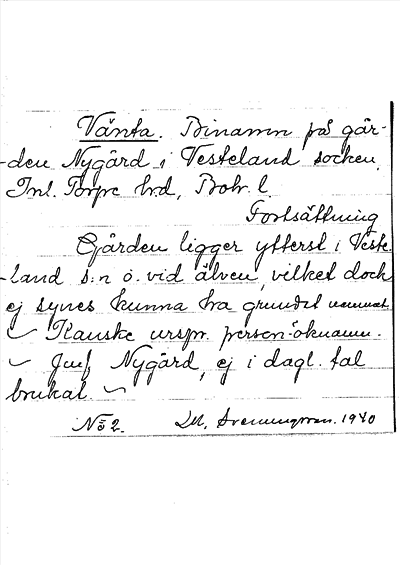 Vänta. Binamn på går-
-den Nygård i Vesteland socken,
Inl. Torpe hrd, Boh. l.
Fortsättning
Gården ligger ytterst i Veste-
-land s:n ö. vid älven, vilket doch
ej synes kunna ha grundat namnet
– Kanske urspr. person-öknamn.
– Jmf Nygård, ej i dagl. tal
brukat –
No 2. Sveningsson. 1940